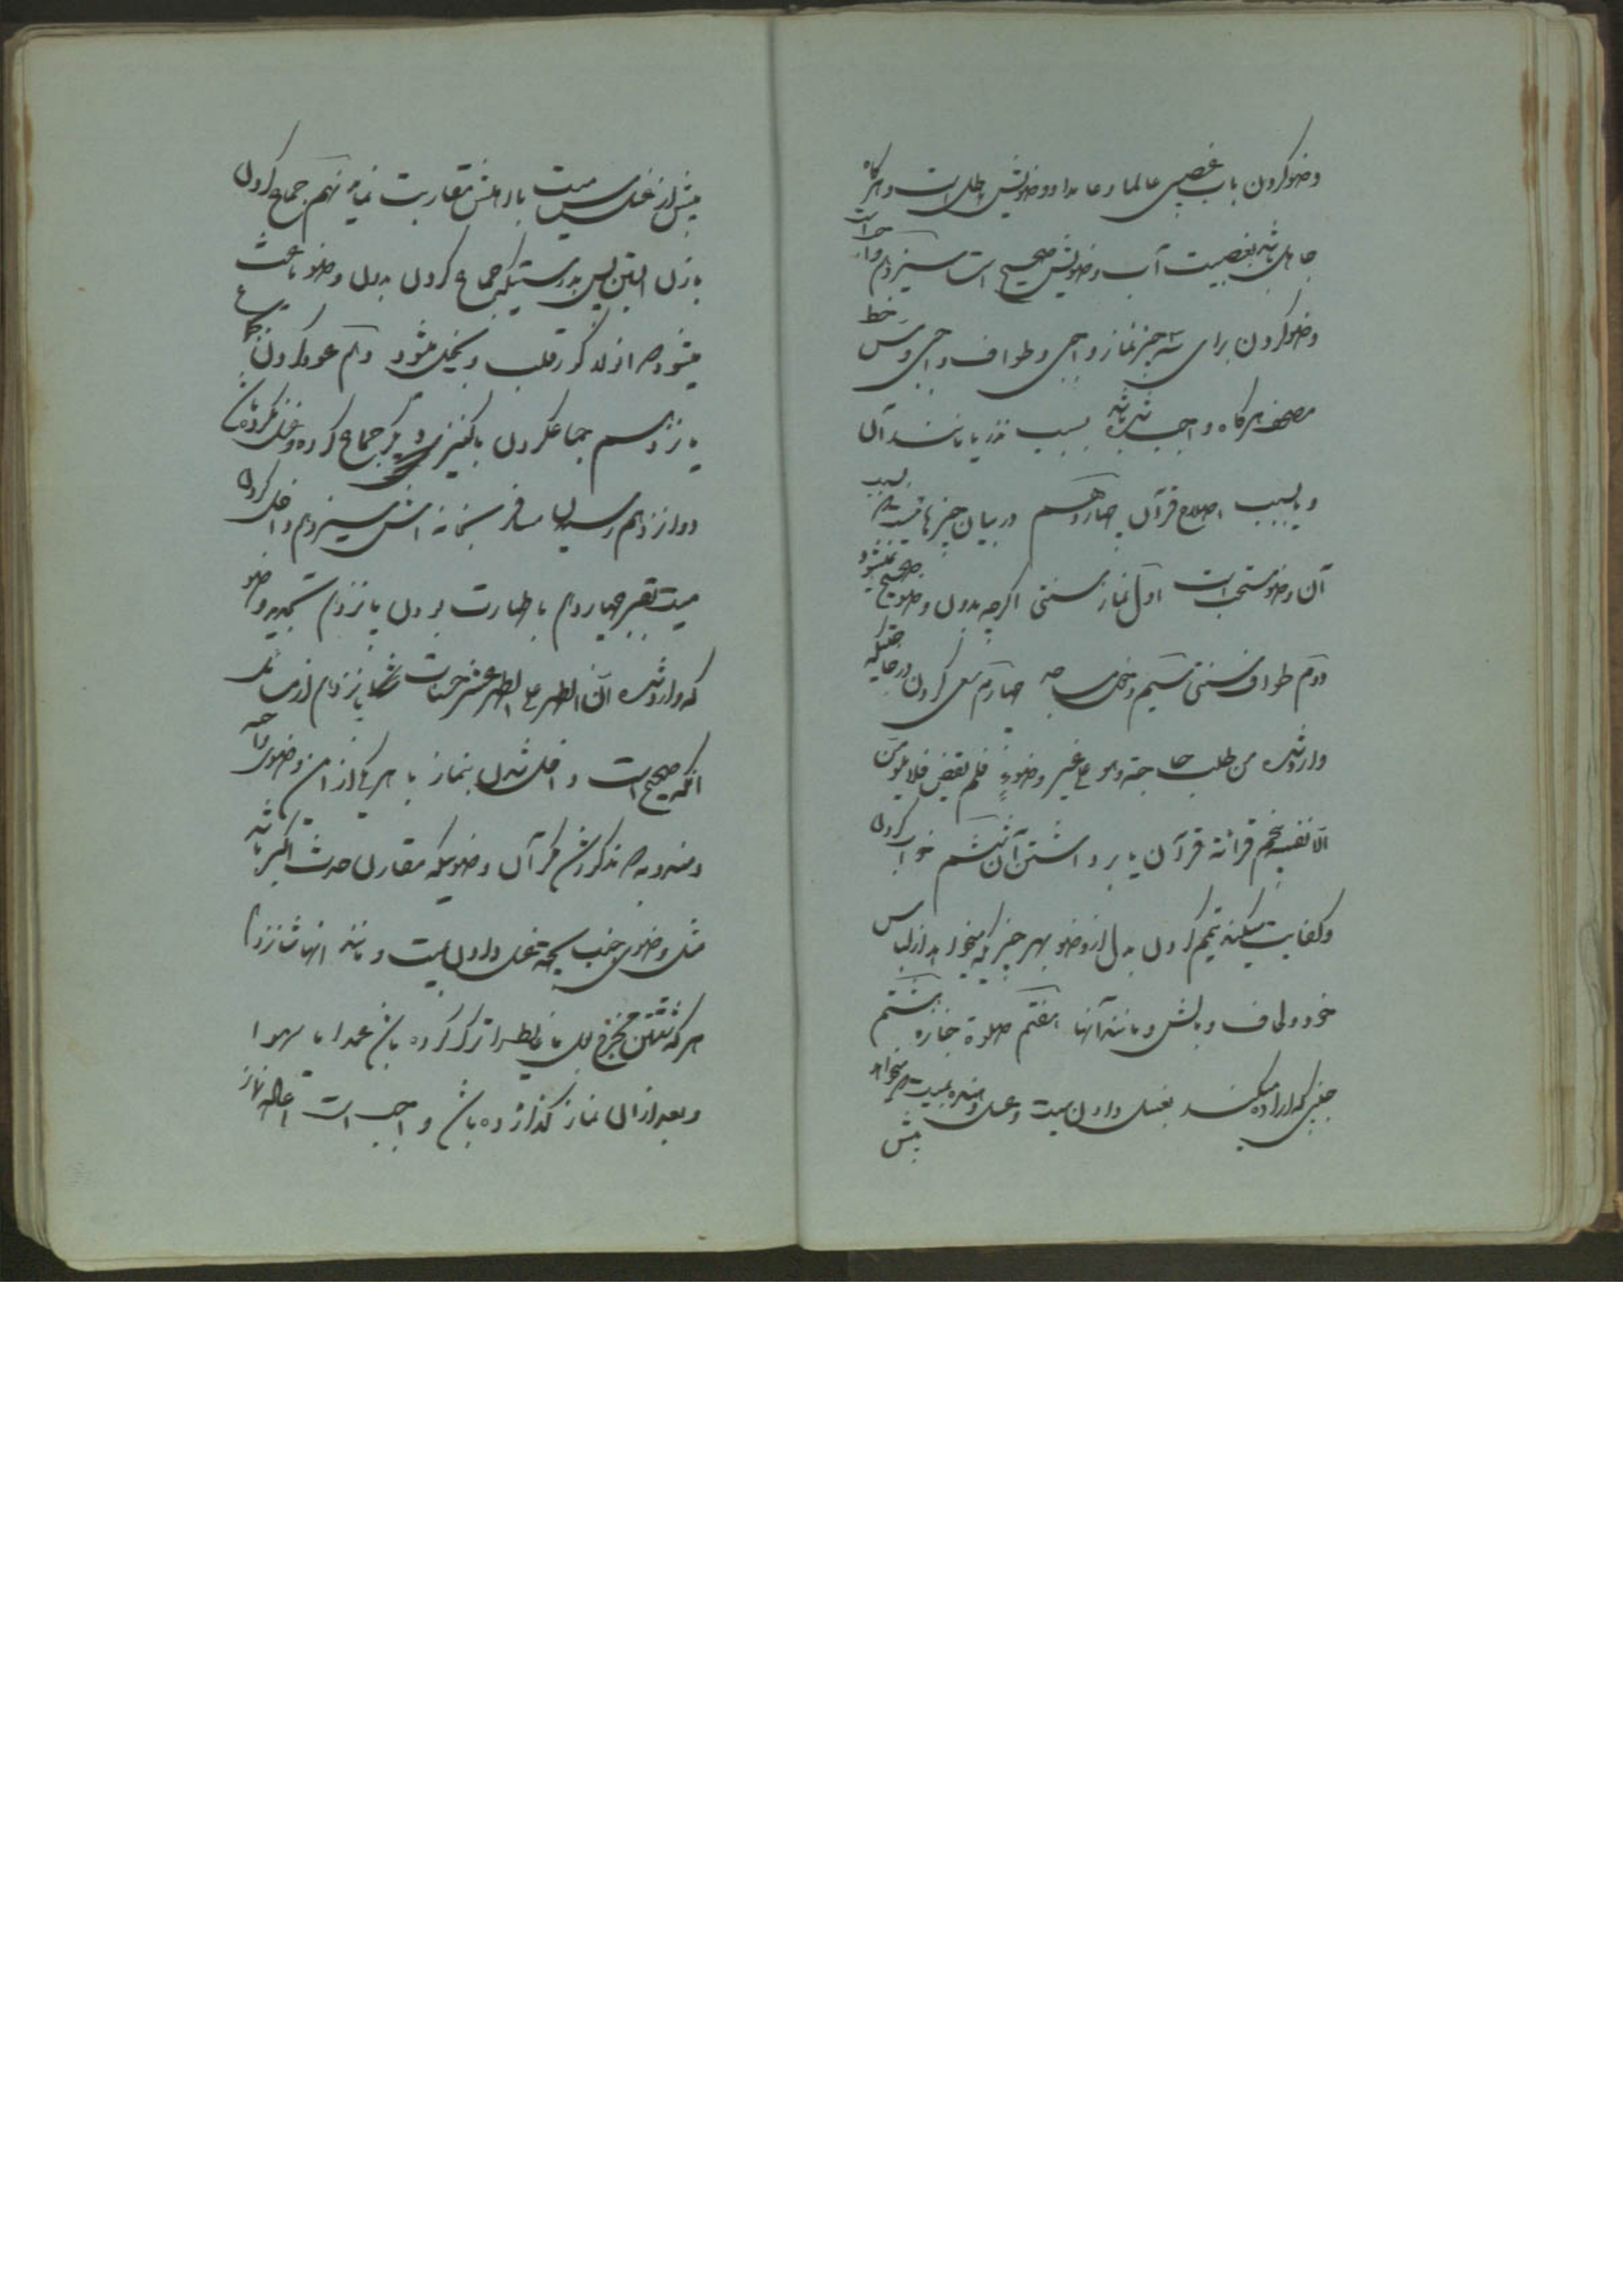 وضو کردن باب غصبی عالما و عامدا وضویش باطل است و هرگاه
جاهل باشد بغصبیت آب وضویش صحیح است سیزدهم واجب است
وضو کردن برای سه چیز نماز واجبی و طواف واجبی و مس خط
مصحف هرگاه واجب شده باشد بسبب نذر یا مانند آن
و یا بسبب اصلاح قرآن چهاردهم در بیان چیزهائیست که بسبب
آن وضو مستحب است اول نماز سنتی اگرچه بدون وضو صحیح نمیشود
دوم طواف سنتی سیم دخول مساجد چهارم سعی کردن در حاجت چنانکه
وارد شده من طلب حاجته و هو علی غیر وضوء فلم تقض فلا یلومن
الا نفسه پنجم قرائة قرآن یا برداشتن آن ششم خواب کردن
و کفایت میکند تیمم کردن بدل از وضو بهر چیزی که میخواهد از لباس
خود و لحاف و بالش و مانند آنها هفتم صلوة جنازه هشتم
جنبی که اراده میکند بغسل دادن میت و غسل دهنده میت که میخواهد
پیش
پیش از غسل مس میت با اهلش مقاربت نماید نهم جماع کردن
با زن آبستن پس بدرستیکه جماع کردن بدون وضو باعث
میشود که اولاد کور قلب و بخیل میشود دهم عود کردن بجماع
یازدهم جماع کردن با کنیزی دیگر جماع کرده و غسل نکرده باشد
دوازدهم رسیدن مسافر بخانه اش سیزدهم داخل کردن
میت بقبر چهاردهم با طهارت بودن پانزدهم تجدید وضو
که وارد شده ان الطهر علی الطهر عشر حسنات شانزدهم
آنکه صحیح است داخل شدن بنماز با هر یک از این وضوی واجبه
و مندوبه مذکوره مگر آن وضوئیکه مقارن حدث اکبر باشد
مثل وضوی جنب بجهة غسل دادن میت و مانند آنها شانزدهم
هرکه شستن مخرج بول یا غایط را ترک کرده باشد عمدا یا سهوا
و بعد از آن نماز گذارده باشد واجب است اعاده نماز